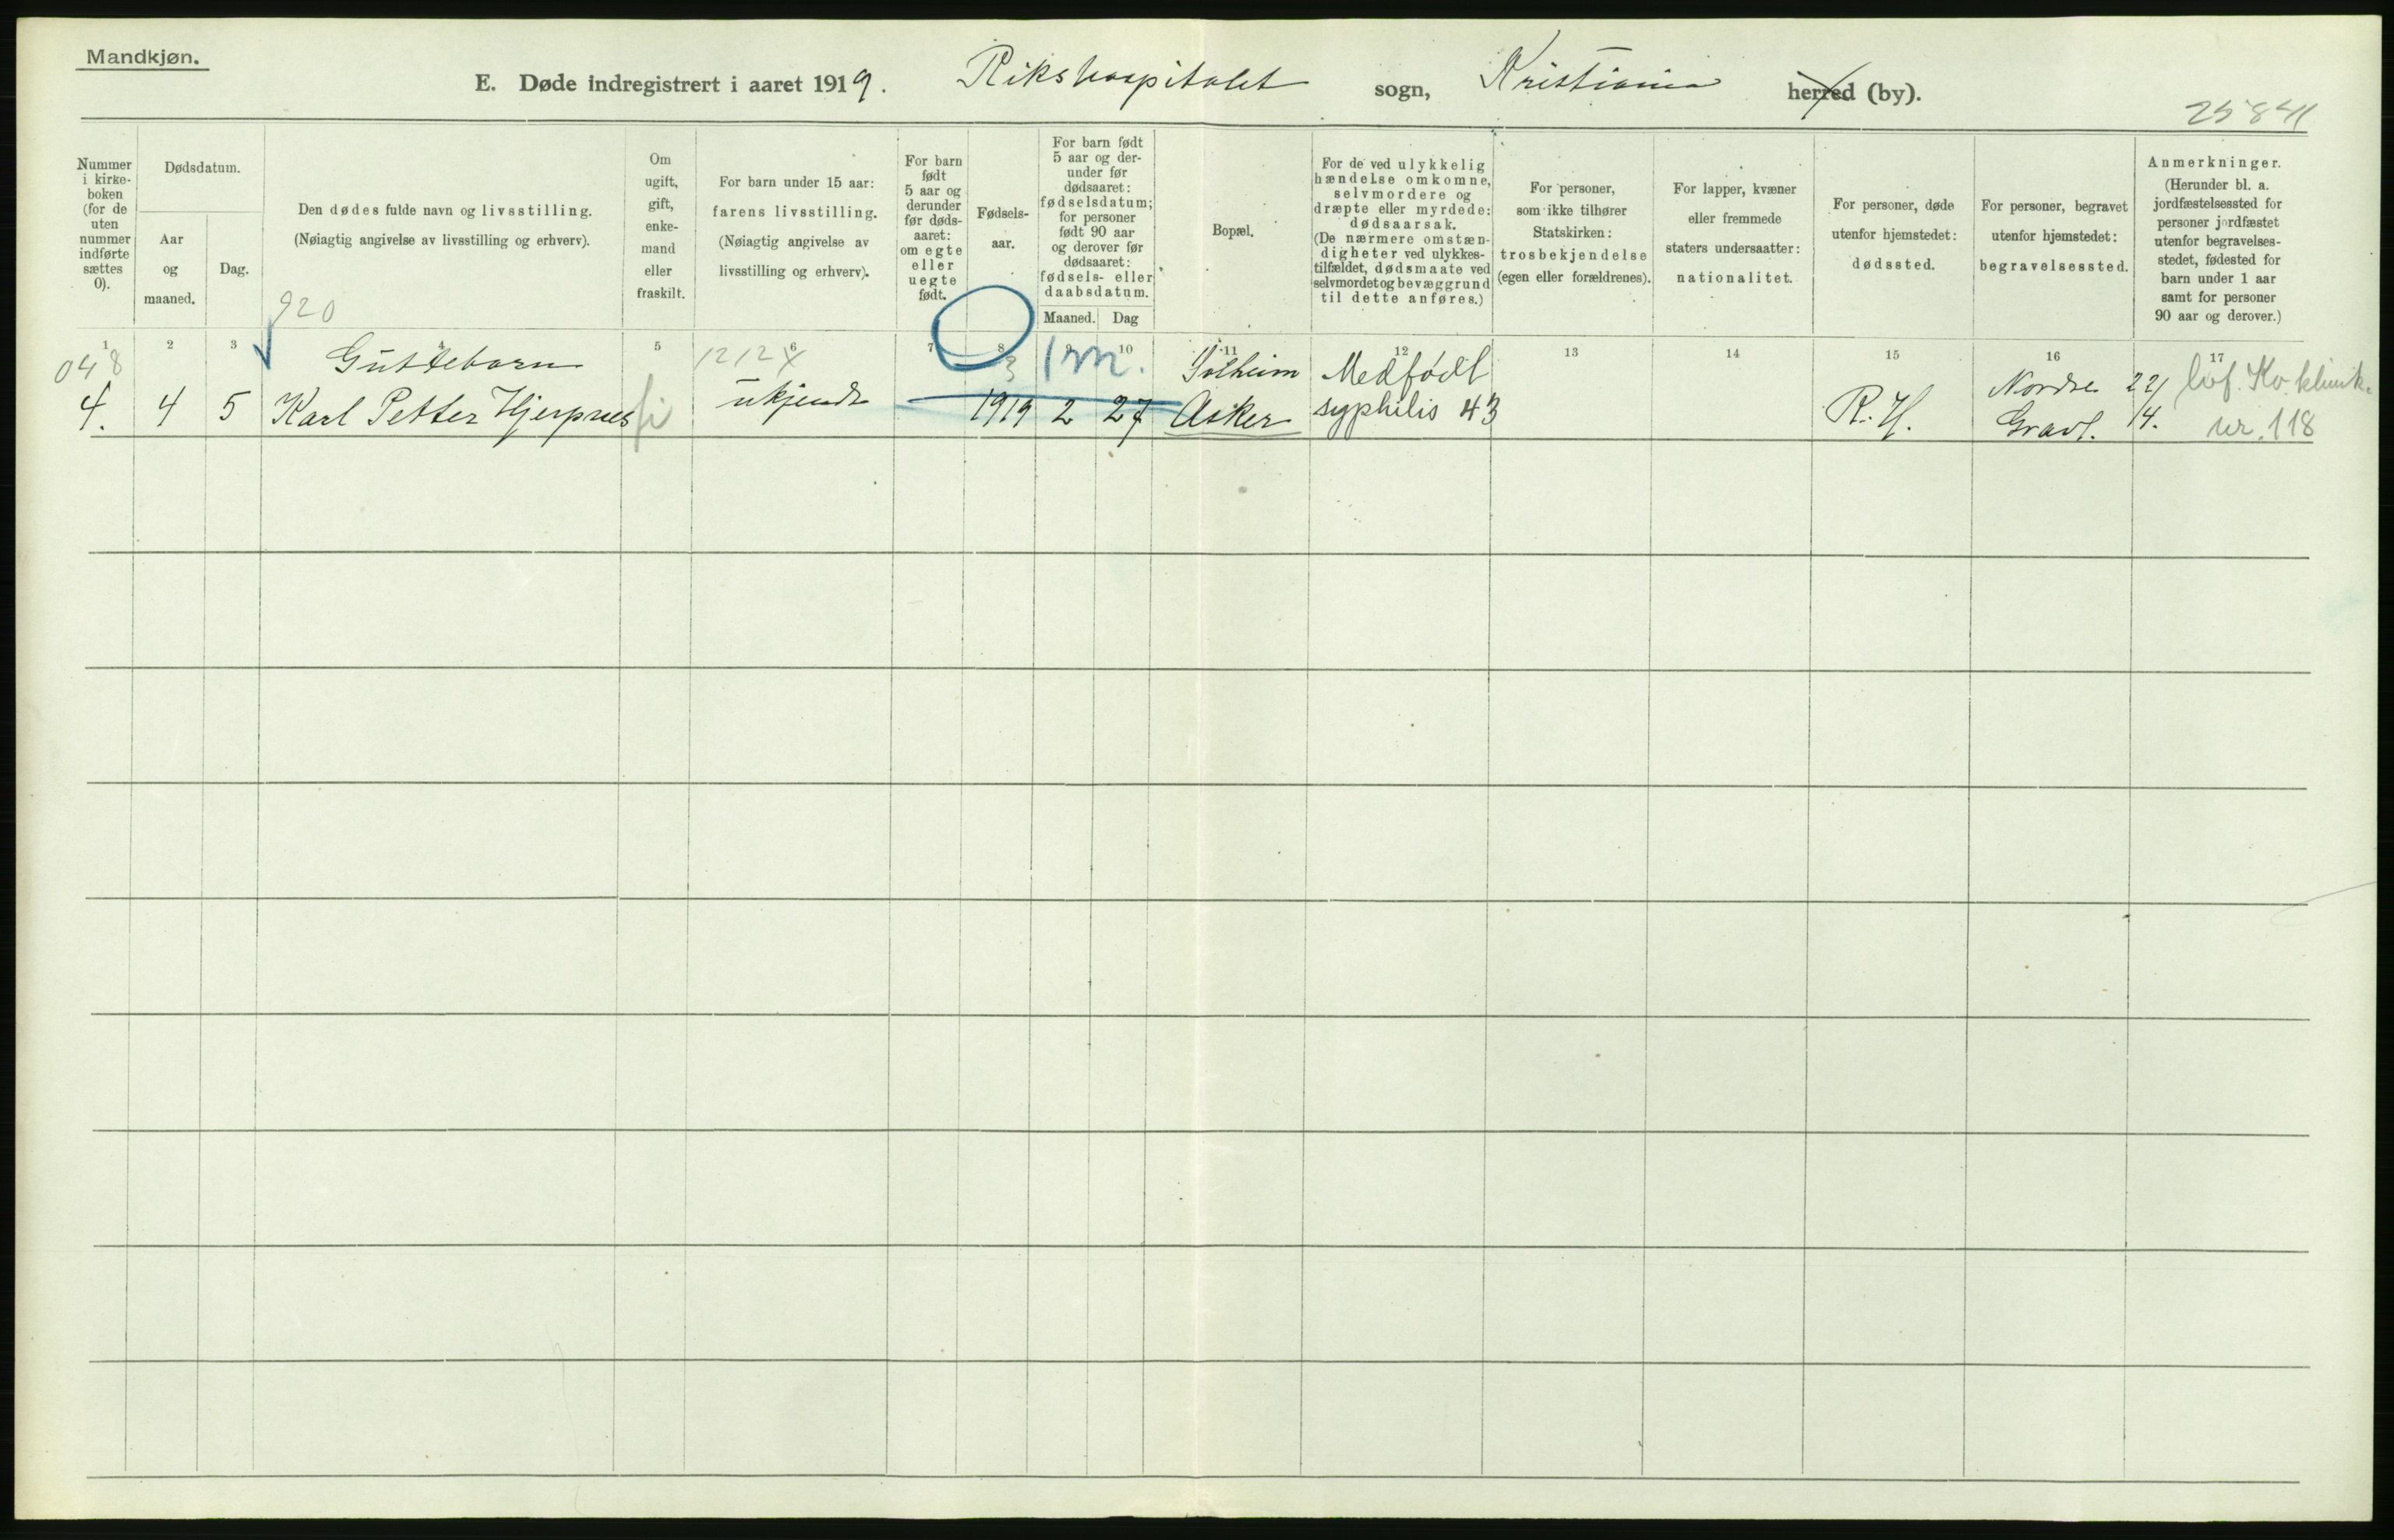 Mandkjøn.
E. Døde indregistrert i aaret 1919. Rikshospitalet sogn, Kristiania herred (by).
25841
Nummer i kirke- boken (for de uten nummer indførte sættes 0).
Dødsdatum.
Aar og maaned.
Dag.
Den dødes fulde navn og livsstilling.
(Nøiagtig angivelse av livsstilling og erhverv).
Om ugift, gift, enke- mand eller fraskilt.
For barn under 15 aar:
farens livsstilling.
(Nøiagtig angivelse av
livsstilling og erhverv).
For barn født 5 aar og derunder før døds- aaret: om egte eller uegte født.
Fødsels- aar.
For barn født 5 aar og der- under før dødsaaret: fødselsdatum; for personer født 90 aar og derover før dødsaaret: fødsels- eller daabsdatum.
Maaned. Dag
Bopæl.
For de ved ulykkelig hændelse omkomne, selvmordere og dræpte eller myrdede: dødsaarsak. (De nærmere omstæn- digheter ved ulykkes- tilfældet, dødsmaate ved selvmordet og bevæggrund til dette anføres.)
For personer, som ikke tilhører Statskirken: trosbekjendelse (egen eller forældrenes).
For lapper, kvæner eller fremmede staters undersaatter: nationalitet.
For personer, døde utenfor hjemstedet: dødssted.
For personer, begravet utenfor hjemstedet: begravelsessted.
Anmerkninger.
(Herunder bl. a. jordfæstelsessted for personer jordfæstet utenfor begravelses- stedet, fødested for barn under 1 aar samt for personer 90 aar og derover.)
920
1 2 3 4 5 6 7 8 9 10 11 12 13 14 15 16 17
048 Guttebarn 1212 X 3 1 m. Solheim Medfødt Nordre 22/
4. 4 5 Karl Petter Hjerpnes ukjendt 1919 2 27 Asker syphilis 43 R. H. Gravl. 14. nr. 118